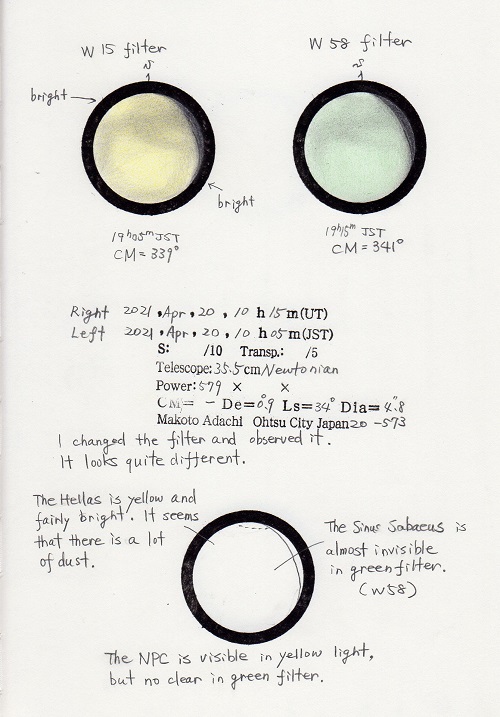 W 15 filter
N
bright
bright
19h05m JST
CM=339°
W 58 filter
N
19h15m JST
CM=341°
Right 2021, Apr, 20, 10 h 15 m(UT)
Left 2021, Apr, 20, 10 h 05 m(JST)
S: /10 Transp.: /5
Telescope: 35.5cm Newtonian
Power: 579 × ×
CM= - De=0°.9 Ls=34° Dia=4".8
Makoto Adachi Ohtsu City Japan 20 -573
I changed the filter and observed it.
It looks quite different.
The Hellas is yellow and
fairly bright. It seems
that there is a lot
of dust.
The Sinus Sabaeus is
almost invisible
in green filter.
(W58)
The NPC is visible in yellow light,
but no clear in green filter.